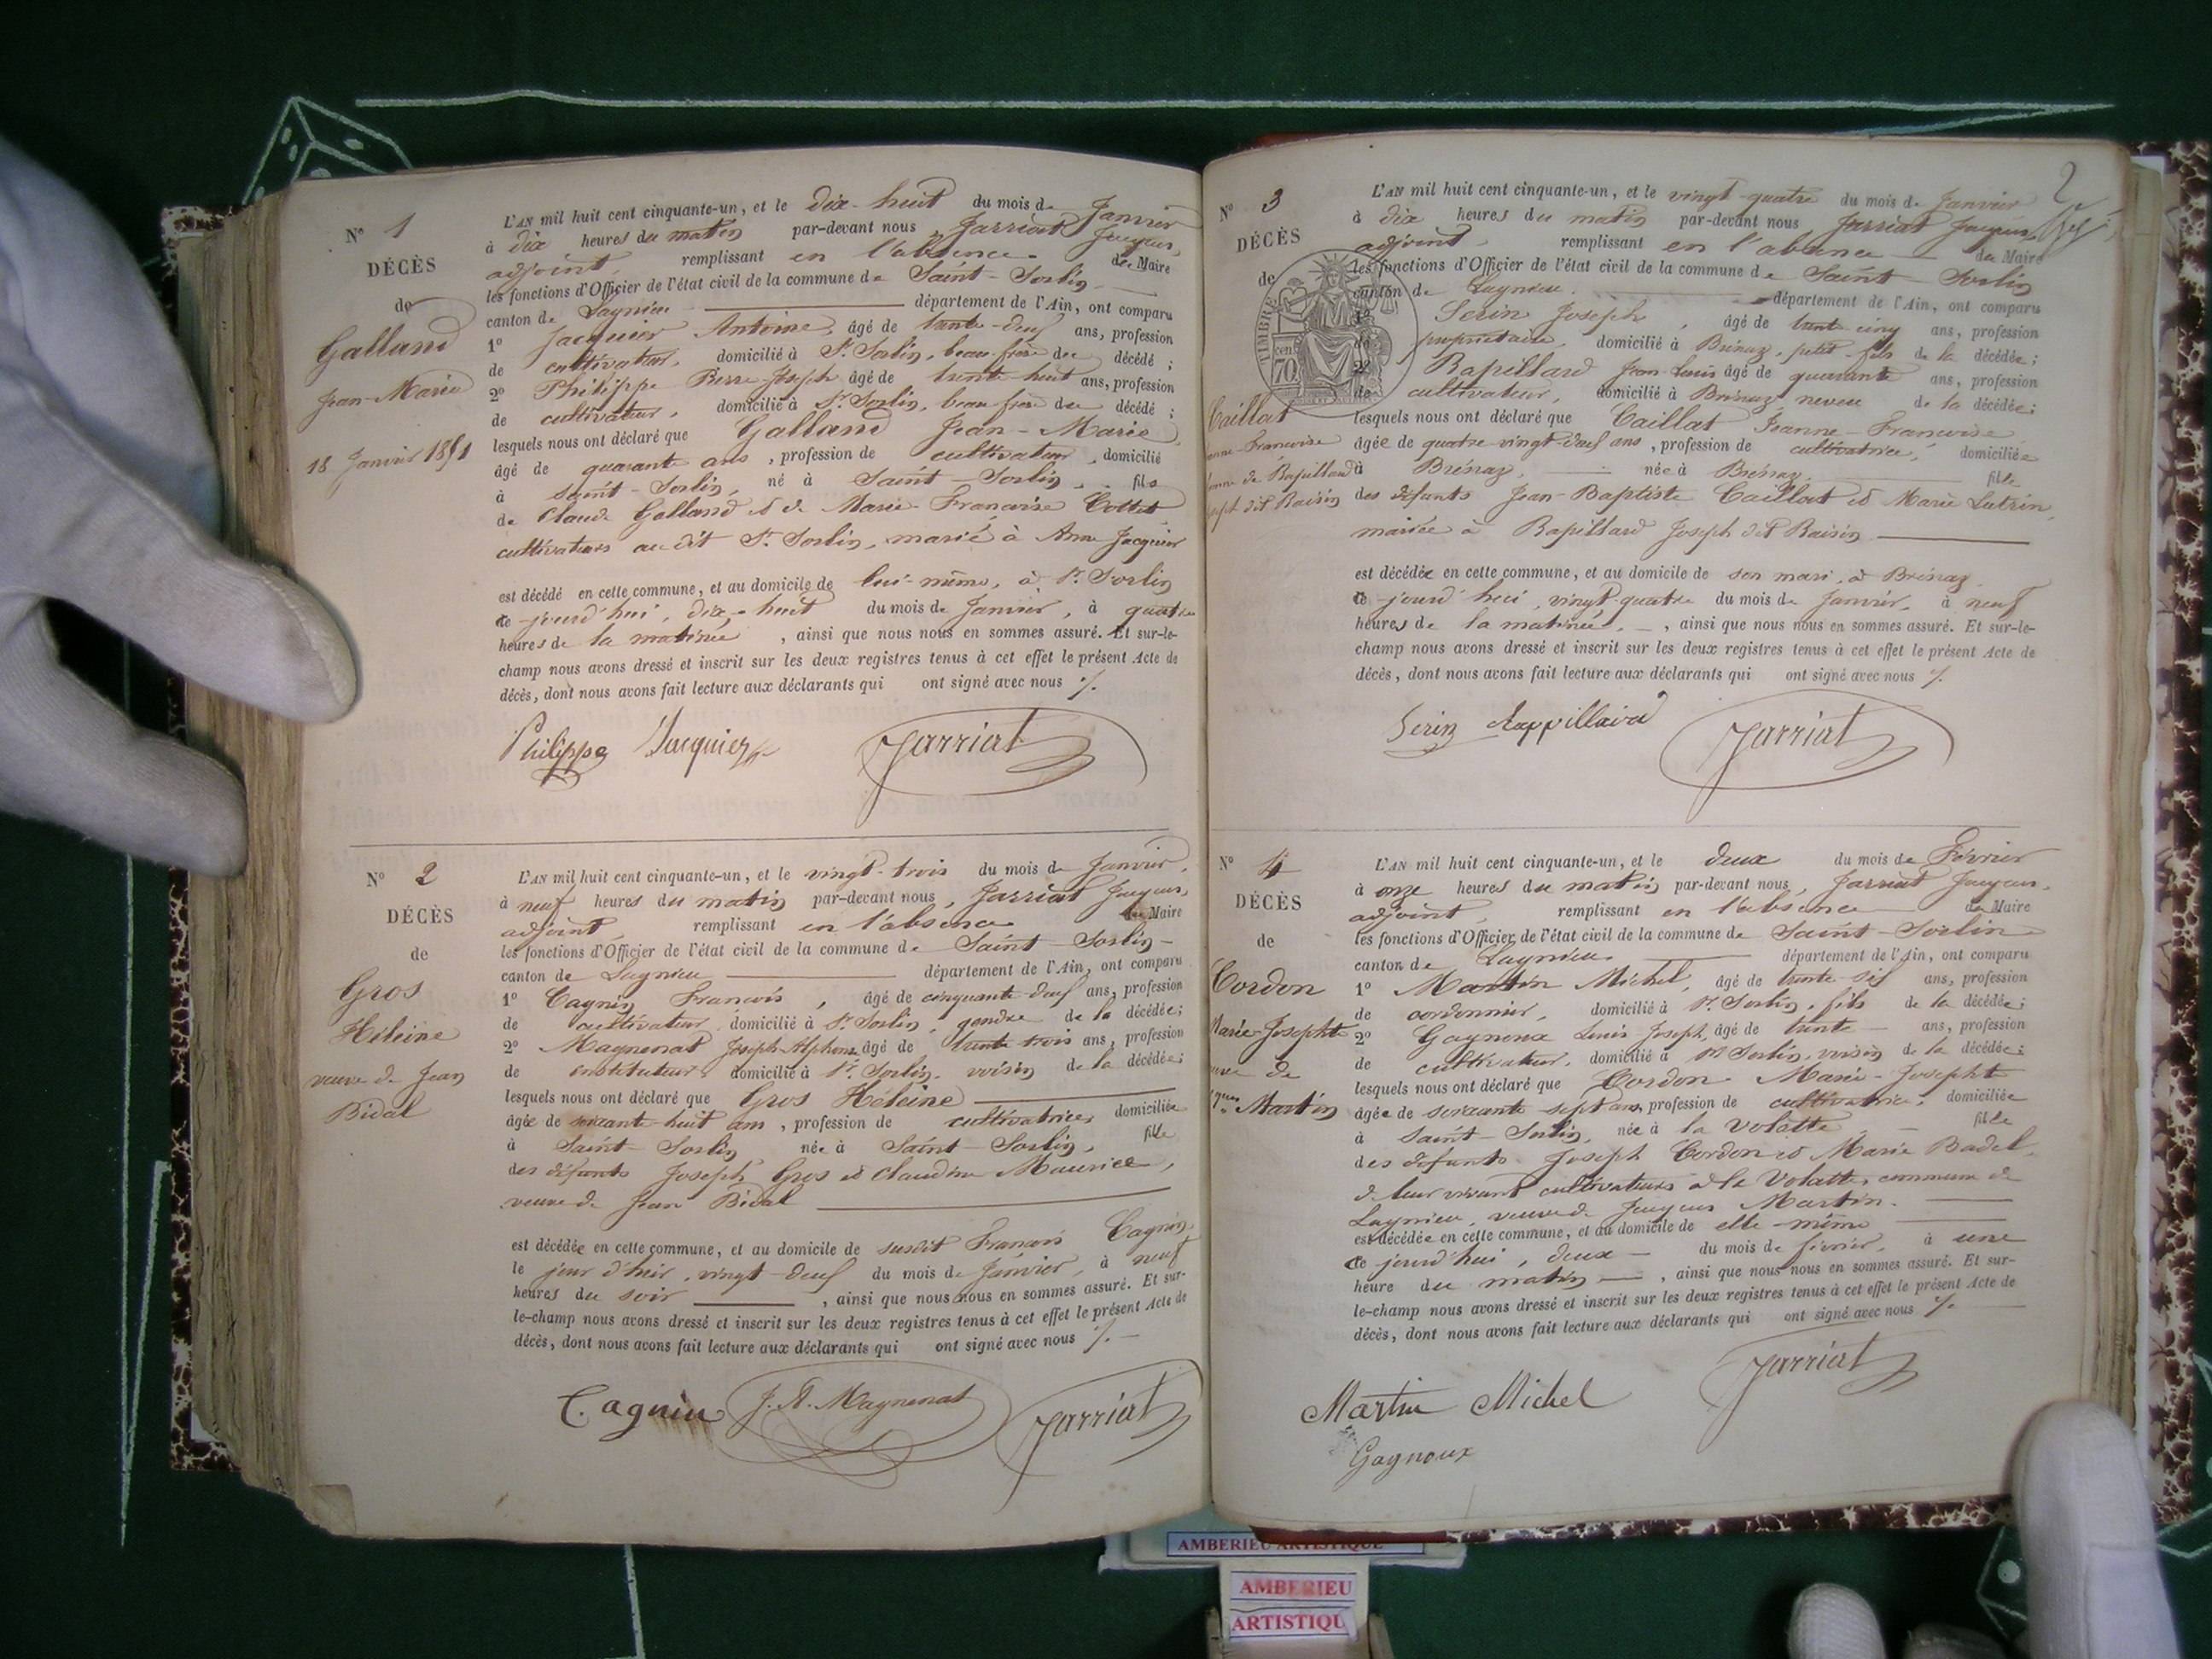 N° 1
DÉCÈS
de
Galland
Jean-Marie
18 Janvier 1851
L'AN mil huit cent cinquante-un, et le dix-huit du mois de Janvier
à dix heures du matin par-devant nous, Jarriat Jacques,
adjoint, remplissant en l'absence du Maire
les fonctions d'Officier de l'état civil de la commune de Saint-Sorlin
canton de Lagnieu département de l'Ain, ont comparu
1° Jacquier Antoine, âgé de trente-deux ans, profession
de cultivateur, domicilié à St. Sorlin, beau-frère du décédé ;
2° Philippe Pierre-Joseph âgé de trente-huit ans, profession
de cultivateur, domicilié à St. Sorlin, beau-frère du décédé ;
lesquels nous ont déclaré que Galland Jean-Marie
âgé de quarante ans, profession de cultivateur, domicilié
à Saint-Sorlin, né à Saint-Sorlin, fils
de Claude Galland & de Marie-Françoise Cottet
cultivateurs au dit St. Sorlin, marié à Anne Jacquier
est décédé en cette commune, et au domicile de lui-même, à St. Sorlin
ce jourd'hui, dix-huit du mois de Janvier, à quatre
heures de la matinée, ainsi que nous nous en sommes assuré. Et sur-le-
champ nous avons dressé et inscrit sur les deux registres tenus à cet effet le présent Acte de
décès, dont nous avons fait lecture aux déclarants qui ont signé avec nous ./.
Philippe Jacquier Jarriat
N° 2
DÉCÈS
de
Gros
Héleine
veuve de Jean
Bidal
L'AN mil huit cent cinquante-un, et le vingt-trois du mois de Janvier,
à neuf heures du matin par-devant nous, Jarriat Jacques,
adjoint, remplissant en l'absence du Maire
les fonctions d'Officier de l'état civil de la commune de Saint-Sorlin-
canton de Lagnieu département de l'Ain, ont comparu
1° Cagnin François, âgé de cinquante-deux ans, profession
de cultivateur, domicilié à St. Sorlin, gendre de la décédée ;
2° Magnenat Joseph-Alphonse âgé de trente trois ans, profession
de instituteur, domicilié à St. Sorlin, voisin de la décédée ;
lesquels nous ont déclaré que Gros Héleine
âgée de soixante-huit ans, profession de cultivatrice, domiciliée
à Saint-Sorlin née à Saint-Sorlin, fille
des défunts Joseph Gros & Claudine Maurice,
veuve de Jean Bidal
est décédée en cette commune, et au domicile de susdit François Cagnin,
le jour d'hier, vingt-deux du mois de Janvier, à neuf
heures du soir, ainsi que nous nous en sommes assuré. Et sur-
le-champ nous avons dressé et inscrit sur les deux registres tenus à cet effet le présent Acte de
décès, dont nous avons fait lecture aux déclarants qui ont signé avec nous ./.
C. agnin J. A. Magnenat Jarriat
2
N° 3
DÉCÈS
de
Caillat
TIMBRE
70
L'AN mil huit cent cinquante-un, et le vingt-quatre du mois de Janvier
à dix heures du matin par-devant nous Jarriat Jacques,
adjoint, remplissant en l'absence du Maire
les fonctions d'Officier de l'état civil de la commune de Saint-Sorlin
canton de Lagnieu département de l'Ain, ont comparu
1° Serin Joseph, âgé de trente-cinq ans, profession
de propriétaire, domicilié à Brénaz, petit-fils de la décédée ;
2° Rapillard Jean-Louis âgé de quarante ans, profession
de cultivateur, domicilié à Brénaz, neveu de la décédée ;
lesquels nous ont déclaré que Caillat Jeanne-Françoise
âgée de quatre-vingt-deux ans, profession de cultivatrice, domiciliée
à Brénaz, née à Brénaz, fille
des défunts Jean-Baptiste Caillat & Marie Lutrin,
mariée à Rapillard Joseph dit Raisin
est décédée en cette commune, et au domicile de son mari, à Brénaz,
ce jourd'hui, vingt-quatre du mois de Janvier, à neuf
heures de la matinée, ainsi que nous nous en sommes assuré. Et sur-le-
champ nous avons dressé et inscrit sur les deux registres tenus à cet effet le présent Acte de
décès, dont nous avons fait lecture aux déclarants qui ont signé avec nous ./.
Serin Rappillard Jarriat
N° 4
DÉCÈS
de
Cordon
Marie-Josephte
veuve de
Martin
L'AN mil huit cent cinquante-un, et le deux du mois de Février
à onze heures du matin par-devant nous, Jarriat Jacques,
adjoint, remplissant en l'absence du Maire
les fonctions d'Officier de l'état civil de la commune de Saint-Sorlin
canton de Lagnieu département de l'Ain, ont comparu
1° Martin Michel, âgé de trente-six ans, profession
de cordonnier, domicilié à St. Sorlin, fils de la décédée ;
2° Gagnoux Louis Joseph, âgé de trente ans, profession
de cultivateur, domicilié à St. Sorlin, voisin de la décédée ;
lesquels nous ont déclaré que Cordon Marie-Josephte
âgée de soixante sept ans, profession de cultivatrice, domiciliée
à Saint-Sorlin, née à la Volatte, fille
des défunts Joseph Cordon & Marie Badel,
de leur vivant cultivateurs à la Volatte, commune de
Lagnieu, veuve de Jacques Martin.
est décédée en cette commune, et au domicile de elle-même
ce jourd'hui, deux du mois de février, à une
heure du matin, ainsi que nous nous en sommes assuré. Et sur-
le-champ nous avons dressé et inscrit sur les deux registres tenus à cet effet le présent Acte de
décès, dont nous avons fait lecture aux déclarants qui ont signé avec nous ./.
Martin Michel Jarriat
Gagnoux
AMBERIEU ARTISTIQUE
AMBERIEU
ARTISTIQU